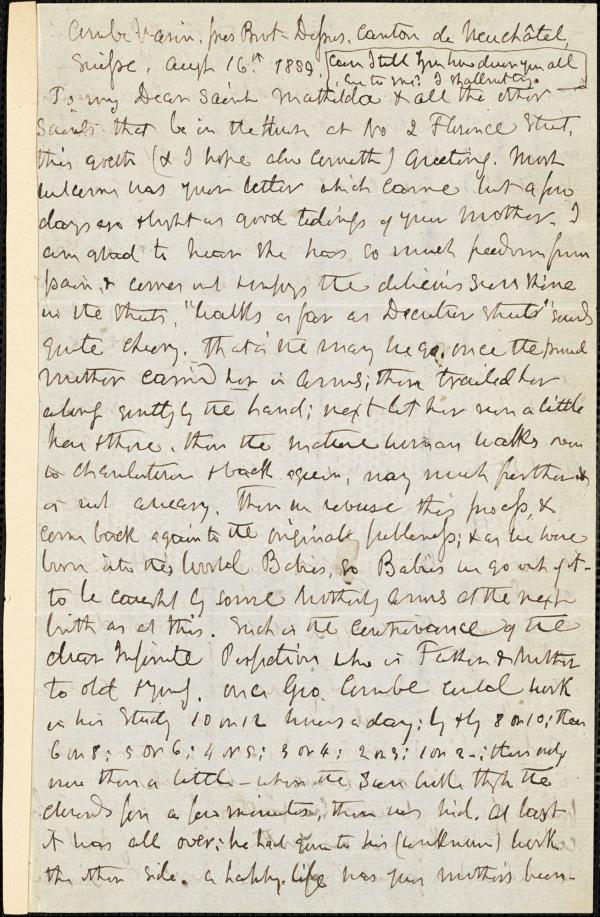 Combe Varin, près Brot-Dessus, Canton de Neuchâtel,
Suisse, Augt 16th 1859.
Can I tell you how dear you all
are to me? I shall not try.
To my Dear Saint Mathilda & all the other
Saints that be in the House at No 2 Florence Street,
this goeth (& I hope also cometh) Greeting. Most
welcome was your letter which came but a few
days ago & light as good tidings of your Mother. I
am glad to hear she has so much freedom from
pain, & comes out & enjoys the delicious Sun Shine
in the Streets, "walks as far as Decatur Street" sounds
quite cheery. That is the way we go. once the proud
Mother carried her in arms; then trailed her
along gently by the hand; next let her run a little
here & there, then the mature woman walks over
to Charlestown & back again, nay much further &
is not aweary. Then we reverse this process, &
come back again to the original feebleness; & as we were
born into this World Babies, so Babies we go out of it—
to be caught by some Motherly arms at the next
birth as at this. Such is the contrivance of the
dear Infinite Perfection who is Father & Mother
to old & young. once Geo. Combe could work
in his Study 10 or 12 hours a day; by & by 8 or 10; then
6 or 8; 5 or 6; 4 or 5; 3 or 4; 2 or 3; 1 or 2—; then only
now & then a little — when the Sun broke thgh the
clouds for a few minutes, then was hid. At last
it was all over; he had gone to his (unknown) work
the other side. A happy life has your mother's been—